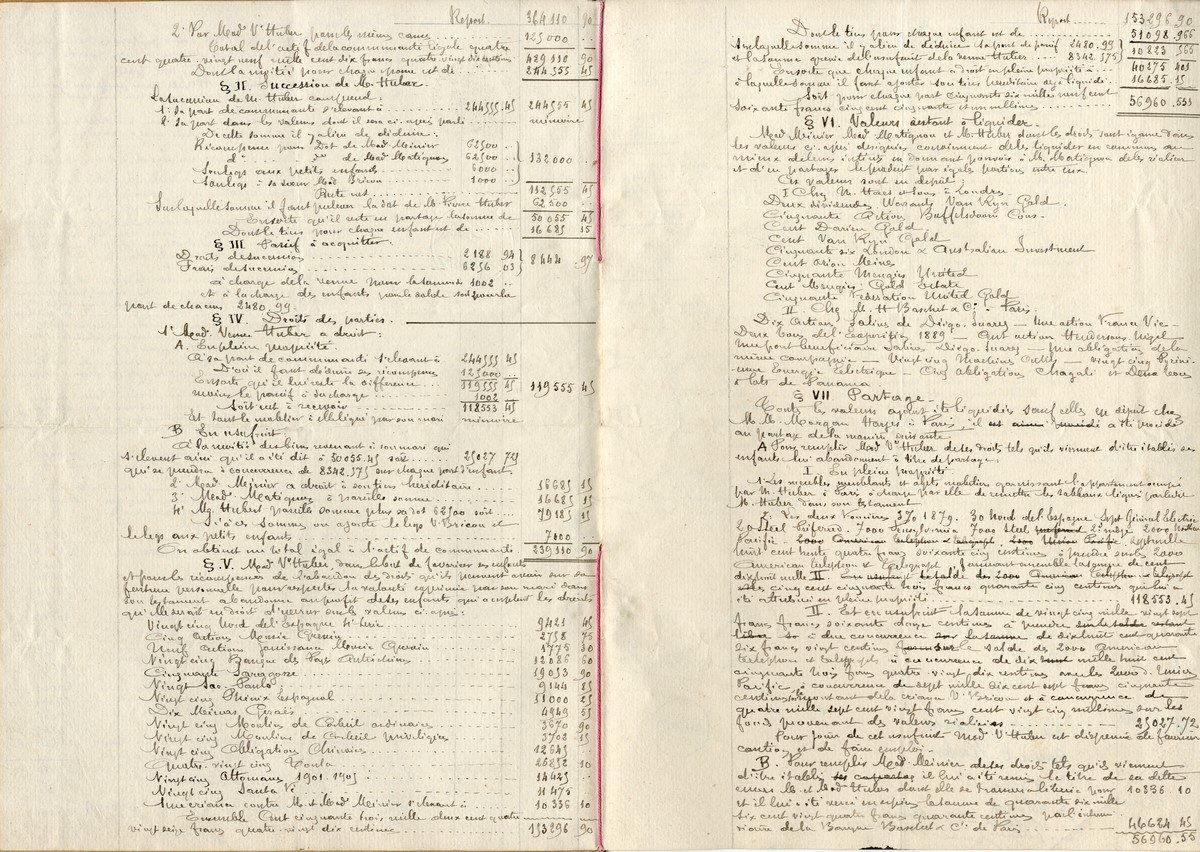 Report. 364110 90
2° Par Mad Ve Huber pour les mêmes causes 125000 ..
Total de l'actif de la communauté légale quatre
cent quatre vingt neuf mille cent dix francs quatre vingt dix centimes 489110 90
Dont la moitié pour chaque époux est de 244555 45
§ II. Succession de Mr Huber.
La succession de M. Huber comprend:
1° Sa part de communauté s'élevant à 244555.45 244555 45
2° Sa part dans les valeurs dont il sera ci-après parlé mémoire
De cette somme il y a lieu de déduire:
Récompense pour Dot de Mad Meinier 62500
d° de Mad Matignon 62500
Sous legs aux petits enfants 6000 132000
Sous legs à sa sœur Mad Bricon 1000
Reste net 112555 45
Sur laquelle somme il faut prélever la dot de M. Pierre Huber 62500 ..
En sorte qu'il reste en partage la somme de 50055 45
Dont le tiers pour chaque enfant est de 16685 15
§ III Passif à acquitter.
Droits de succession 2188 94
Frais de succession 6256 03 8444 97
à charge de la veuve pour la somme 1002
et à la charge des enfants pour le solde soit pour la
part de chacun 2480.99
§ IV. Droits des parties.
1° Mad. Veuve Huber a droit:
A. En pleine propriété.
À sa part de communauté s'élevant à 244555 45
D'où il faut déduire ses récompenses 125000
En sorte qu'il lui reste la différence 119555 45 119555 45
moins le passif à sa charge 1002
Soit net à recevoir 118553 45
Et tout le mobilier à elle légué par son mari mémoire
B En usufruit.
À la moitié des biens revenant à son mari qui
s'élèvent ainsi qu'il a été dit à 50055.45 soit 25027 72
qui se prendra à concurrence de 8342.575 sur chaque part d'enfant.
2° Mad Meinier a droit à son tiers héréditaire 16685 15
3° Mad Matignon à pareille somme 16685 15
4° Mr Hubert pareille somme plus sa dot 62500 soit 79185 15
Si à ces sommes on ajoute le legs V. Bricon et
le legs aux petits enfants 7000 ..
On obtient un total égal à l'actif de communauté 239110 90
§ V. Mad Ve Huber, dans le but de favoriser ses enfants
et pour les récompenser de l'abandon des droits qu'ils peuvent avoir sur sa
fortune personnelle pour respecter la volonté exprimée par son mari dans
son testament abandonne au profit de ses enfants qui acceptent les droits
qu'elle serait en droit d'exercer sur les valeurs ci après:
Vingt cinq Nord de l'Espagne 4e série 9421 45
Cinq actions Musée Grévin 2758 75
Neuf Actions Jouissance Musée Grévin 1775 30
Vingt cinq Banque des Pays Autrichiens 12086 60
Cinquante Saragosse 19053 90
Vingt Sao Paulo 9144 85
Vingt cinq Phénix Espagnol 11000 25
Dix Minas Geraes 4949 55
Vingt cinq Moulins de Corbeil ordinaires 3670 90
Vingt cinq Moulins de Corbeil privilégiés 3702 15
Vingt cinq Obligations Chinoises 12645 ..
Quatre vingt cinq Tonla 26852 10
Vingt cinq Ottomans 1901.1905 14425 ..
Vingt cinq Santa Fé 11475 ..
Une créance contre M. et Mad Meinier s'élevant à 10336 10
Ensemble Cent cinquante trois mille deux cent quatre
vingt seize francs quatre-vingt dix centimes 153296 90
Report 153296.90
Dont le tiers pour chaque enfant est de 51098.966
Sur laquelle somme il y a lieu de déduire sa part de passif 2480.99
et la somme grevée de l'usufruit de la veuve Huber 8342.575 10823 565
En sorte que chaque enfant a droit en pleine propriété à 40275 401
à laquelle somme il faut ajouter son tiers héréditaire déjà liquidé 16685.15
Soit pour chaque part cinquante six mille neuf cent
soixante francs cinq cent cinquante et un millimes 56960.551
§ VI. Valeurs restant à liquider.
Mad Meinier Mad Matignon et Mr Huber dont les droits sont égaux dans
les valeurs ci-après désignées conviennent de les liquider en commun au
mieux de leurs intérêts en donnant pouvoir à M. Matignon de les réaliser
et d'en partager le produit par égales portions entre eux.
Ces valeurs sont en dépôt:
I Chez M. Haes et sons à Londres.
Deux dividendes Warants Van Ryn Gold.
Cinquante Action Buffelsdoorn Cons.
Cent Darien Gold.
Cent Van Ryn Gold
Cinquante six London & Australian Investment
Cent Orion Mines
Cinquante Menzies United
Cent Menzies Gold Estate
Cinquante Federation United Gold
II. Chez M. H Baschet & Cie Paris.
Dix Action Salins de Diégo Suarez – Une action France Vie –
Deux bons de l'Exposition 1889 – Cent action Hendersons Nigel –
Une part bénéficiaire Salins Diego-Suarez – Une obligation de la
même compagnie – Vingt cinq Machines Outils – vingt cinq Pyréné-
enne Energie Electrique – Cinq obligations Chagali et Deux bons
à lots de Panama.
§ VII Partage.
Toutes les valeurs ayant été liquidées sauf celles en dépôt chez
M. M. Morgan Harjes à Paris, il est ainsi procédé a été procédé
au partage de la manière suivante.
A Pour remplir Mad Ve Huber de ses droits tels qu'ils viennent d'être établis ses
enfants lui abandonnent à titre de partage:
I. En pleine propriété.
1° Les meubles meublants et objets mobiliers garnissant l'appartement occupé
par M. Huber à Paris à charge par elle de remettre les tableaux légués par feu
M. Huber dans son testament.
2° Les deux Roumains 370 1879. 30 Nord de l'Espagne Sept Général Electric
2000 Steel Préférend. 7000 Pensylvania 7000 Steel 2e mtge 2000 Northern
Pacific – 2000 American Telephon & Telegraph 2000 Union Pacific. sept mille
huit cent trente quatre francs soixante cinq centimes à prendre sur les 2000
American Telephon & Telegraph formant ensemble la somme de cent
dix huit mille II. En usufruit le solde des 2000 American Telephon & Telegraph
cinq cent cinquante trois francs quarante cinq centimes qui lui
est attribué en pleine propriété 118553.45
II. Et en usufruit la somme de vingt cinq mille vingt sept
francs soixante douze centimes à prendre sur le solde restant
libre à due concurrence sur la somme de dix huit cent quarante
dix francs vingt centimes formant le solde des 2000 American
Telephon et telegraph, à concurrence de dix sept mille huit cent
cinquante trois francs quatre vingt dix centimes sur les 2000 d. Union
Pacific, à concurrence de sept mille dix cent sept francs cinquante
centimes provenant de la créance V. Bricon et à concurrence de
quatre mille sept cent vingt francs cent vingt cinq millimes sur les
fonds provenant de valeurs réalisées 25027.72
Pour jouir de cet usufruit Mad Ve Huber est dispensée de fournir
caution et de faire emploi.
B. Pour remplir Mad Meinier de ses droits tels qu'ils viennent
d'être établis il lui a été remis le titre de sa dette
envers M. et Mad Huber dont elle se trouve libérée pour 10336 10
et il lui a été versé en espèces la somme de quarante six mille
six cent vingt quatre francs quarante cinq centimes par l'intermé-
diaire de la Banque Baschet & Cie de Paris 46624 45
56960.55